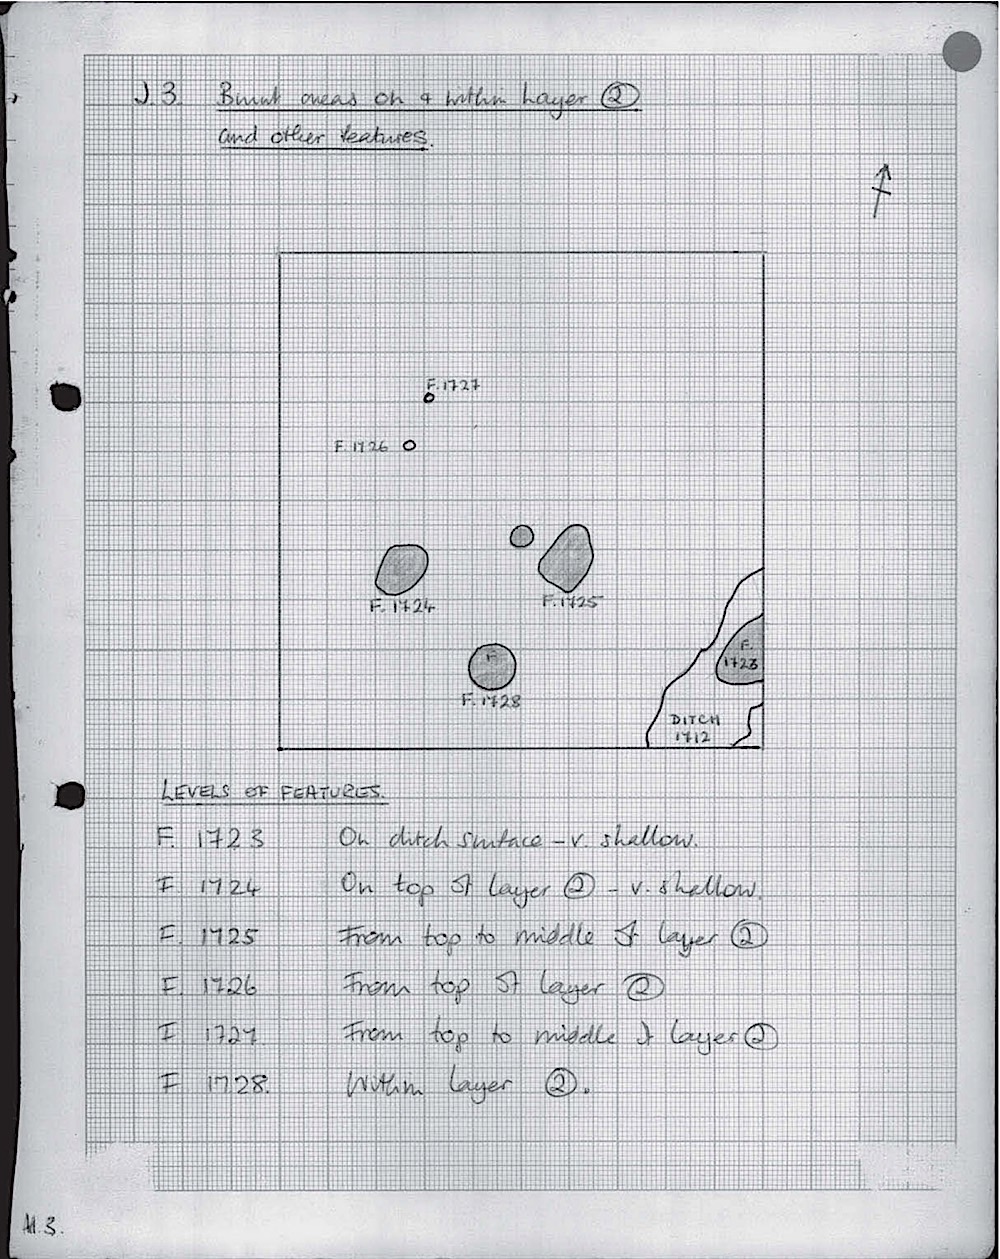 J.3. Burnt areas on & within Layer ②
and other features.
F.1727
F.1726
F.1724
F.1725
F.
1723
F
F.1728
DITCH
1712
LEVELS OF FEATURES.
F. 1723 On ditch surface – v. shallow.
F 1724 On top of layer ② – v. shallow.
F. 1725 From top to middle of layer ②
F. 1726 From top of layer ②
F 1727 From top to middle of layer ②
F 1728. Within layer ②.